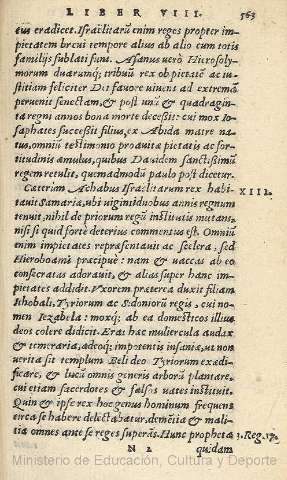 LIBER VIII. 563
tus eradicet. Israëlitarũ enim reges propter im-
pietatem breui tempore alius ab alio cum totis
familijs sublati sunt. Asanus verò Hierosoly-
morum duarumq; tribuũ rex ob pietatẽ ac iu-
stitiam feliciter Dei fauore viuens ad extremã
peruenit senectam, & post unũ & quadragin-
ta regni annos bona morte decessit: cui mox Io-
saphates successit filius, ex Abida matre na-
tus, omniũ testimonio proauitæ pietatis ac for-
titudinis æmulus, quibus Dauidem sanctissimũ
regem retulit, quemadmodũ paulo post dicetur.
Cæterùm Achabus Israëlitarum rex habi- XIII.
tauit Samaria, ubi viginti duobus annis regnum
tenuit, nihil de priorum regũ institutis mutans,
nisi si quid forte deterius commentus est. Omniũ
enim impietates repræsentauit ac scelera, sed
Hieroboami præcipuè: nam & uaccas ab eo
consecratas adorauit, & alias super hanc im-
pietates addidit. Vxorem præterea duxit filiam
Ithobali, Tyriorum ac Sidoniorũ regis, cui no-
men Iezabela: moxq; ab ea domesticos illius
deos colere didicit. Erat hæc muliercula audax
& temeraria, adeoq; impotentis insania, ut non
verita sit templum Beli deo Tyriorum exædi-
ficare, & lucũ omnis generis arborũ plantare,
cui etiam sacerdotes & falsos vates instituit.
Quin & ipse rex hoc genus hominum frequens
circa se habere delectabatur, demẽtia & mali-
tia omnes ante se reges superãs. Hunc propheta 3. Reg. 17.
N 2 quidam
Ministerio de Educación, Cultura y Deporte